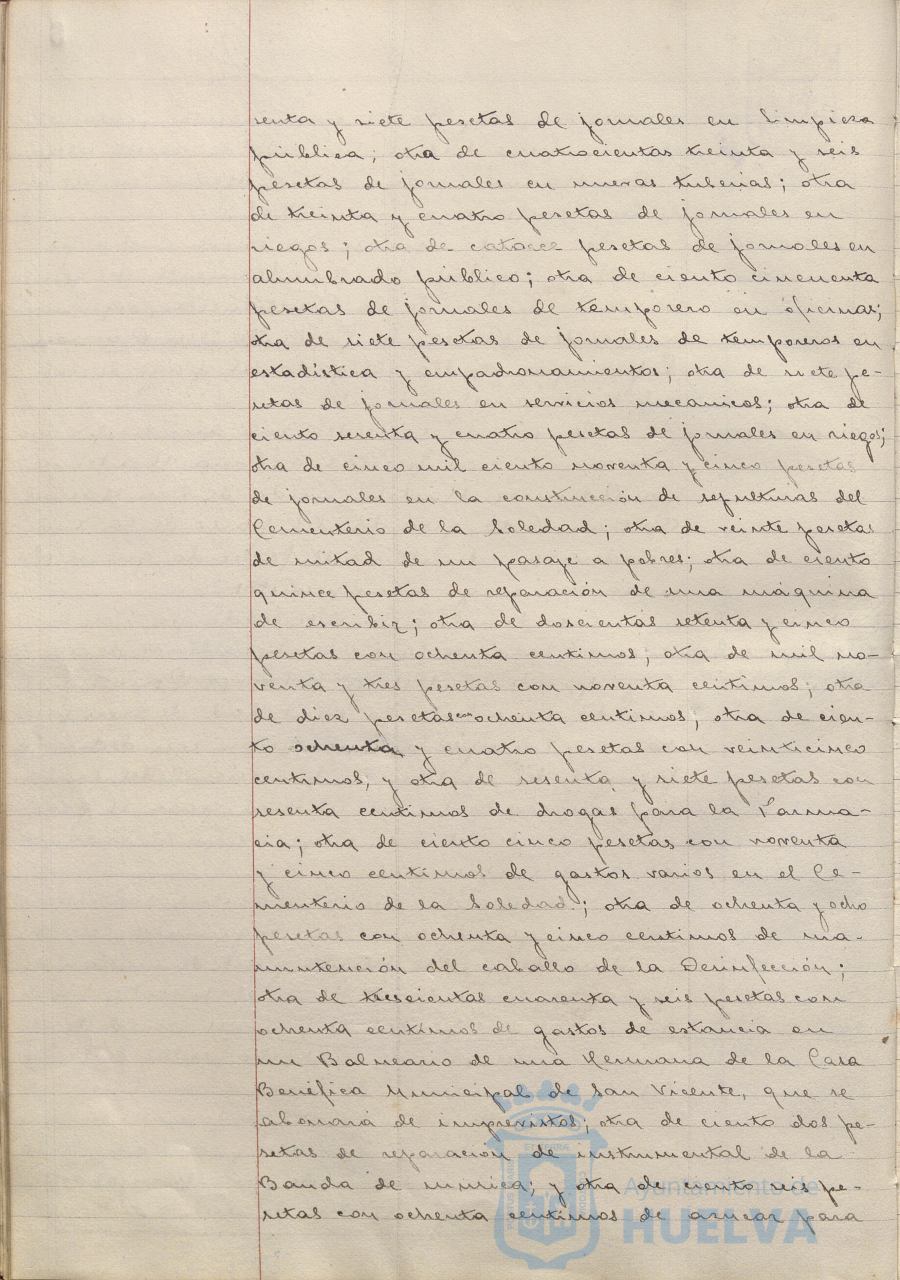 senta y siete pesetas de jornales en limpieza
pública; otra de cuatrocientas treinta y seis
pesetas de jornales en nuevas tuberias; otra
de treinta y cuatro pesetas de jornales en
riegos; otra de catorce pesetas de jornales en
alumbrado público; otra de ciento cincuenta
pesetas de jornales de temporero en oficinas;
otra de siete pesetas de jornales de temporeros en
estadística y empadronamientos; otra de siete pe-
setas de jornales en servicios mecanicos; otra de
ciento sesenta y cuatro pesetas de jornales en riegos;
otra de cinco mil ciento noventa y cinco pesetas
de jornales en la construcción de sepulturas del
Cementerio de la Soledad; otra de veinte pesetas
de mitad de un pasaje a pobres; otra de ciento
quince pesetas de reparación de una máquina
de escribir; otra de doscientas setenta y cinco
pesetas con ochenta centimos; otra de mil no-
venta y tres pesetas con noventa centimos; otra
de diez pesetas con ochenta centimos; otra de cien-
to ochenta y cuatro pesetas con veinticinco
centimos, y otra de sesenta y siete pesetas con
sesenta centimos de drogas para la Farma-
cia; otra de ciento cinco pesetas con noventa
y cinco centimos de gastos varios en el Ce-
menterio de la Soledad; otra de ochenta y ocho
pesetas con ochenta y cinco centimos de ma-
nutención del caballo de la Desinfección;
otra de trescientas cuarenta y seis pesetas con
ochenta centimos de gastos de estancia en
un Balneario de una Hermana de la Casa
Benéfica Municipal de San Vicente, que se
abonará de imprevistos; otra de ciento dos pe-
setas de reparacion de instrumental de la
Banda de musica; y otra de ciento seis pe-
setas con ochenta centimos de azucar para
Ayuntamiento de
HUELVA